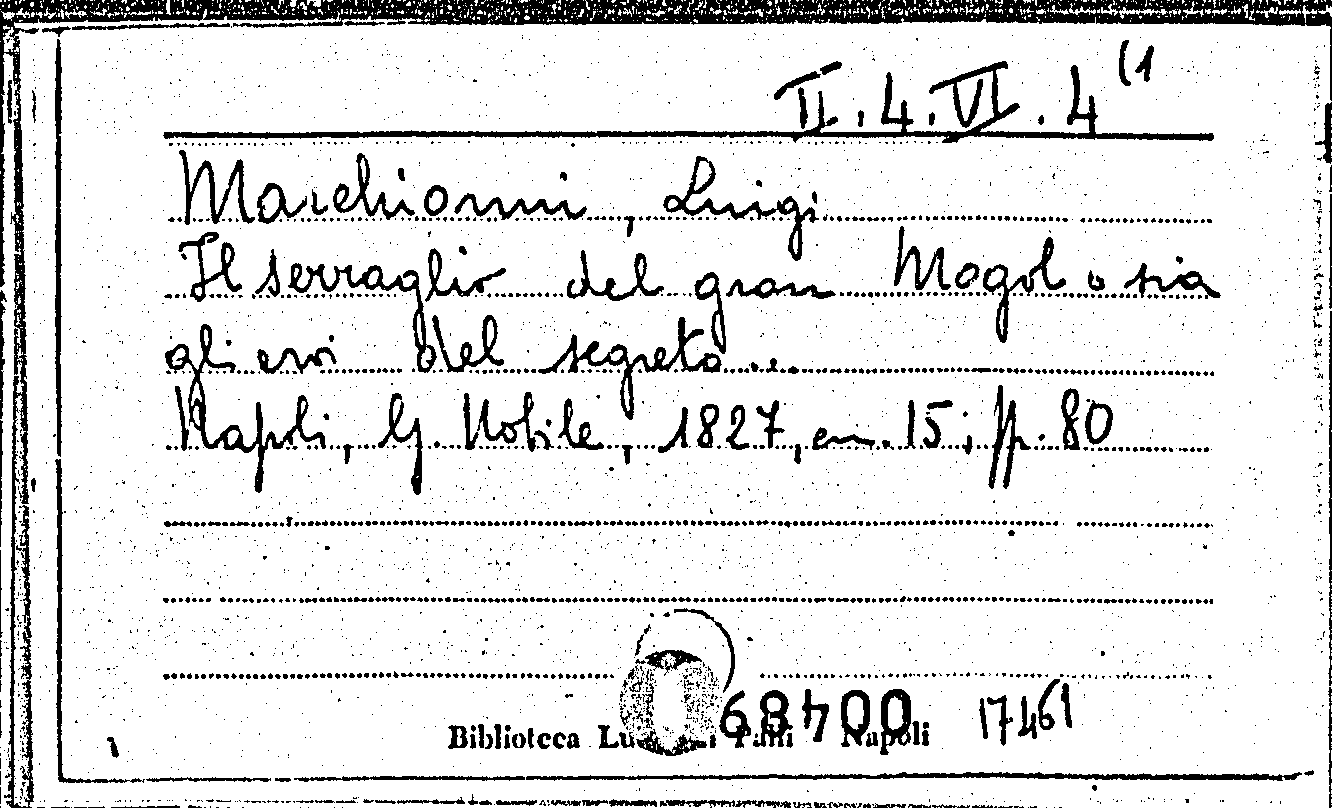 II.4.VI.4(1
Marchionni, Luigi
Il serraglio del gran Mogol o sia
gli eroi del segreto...
Napoli, G. Nobile, 1827, cm. 15; pp. 80
004489 17461
Biblioteca Napoli